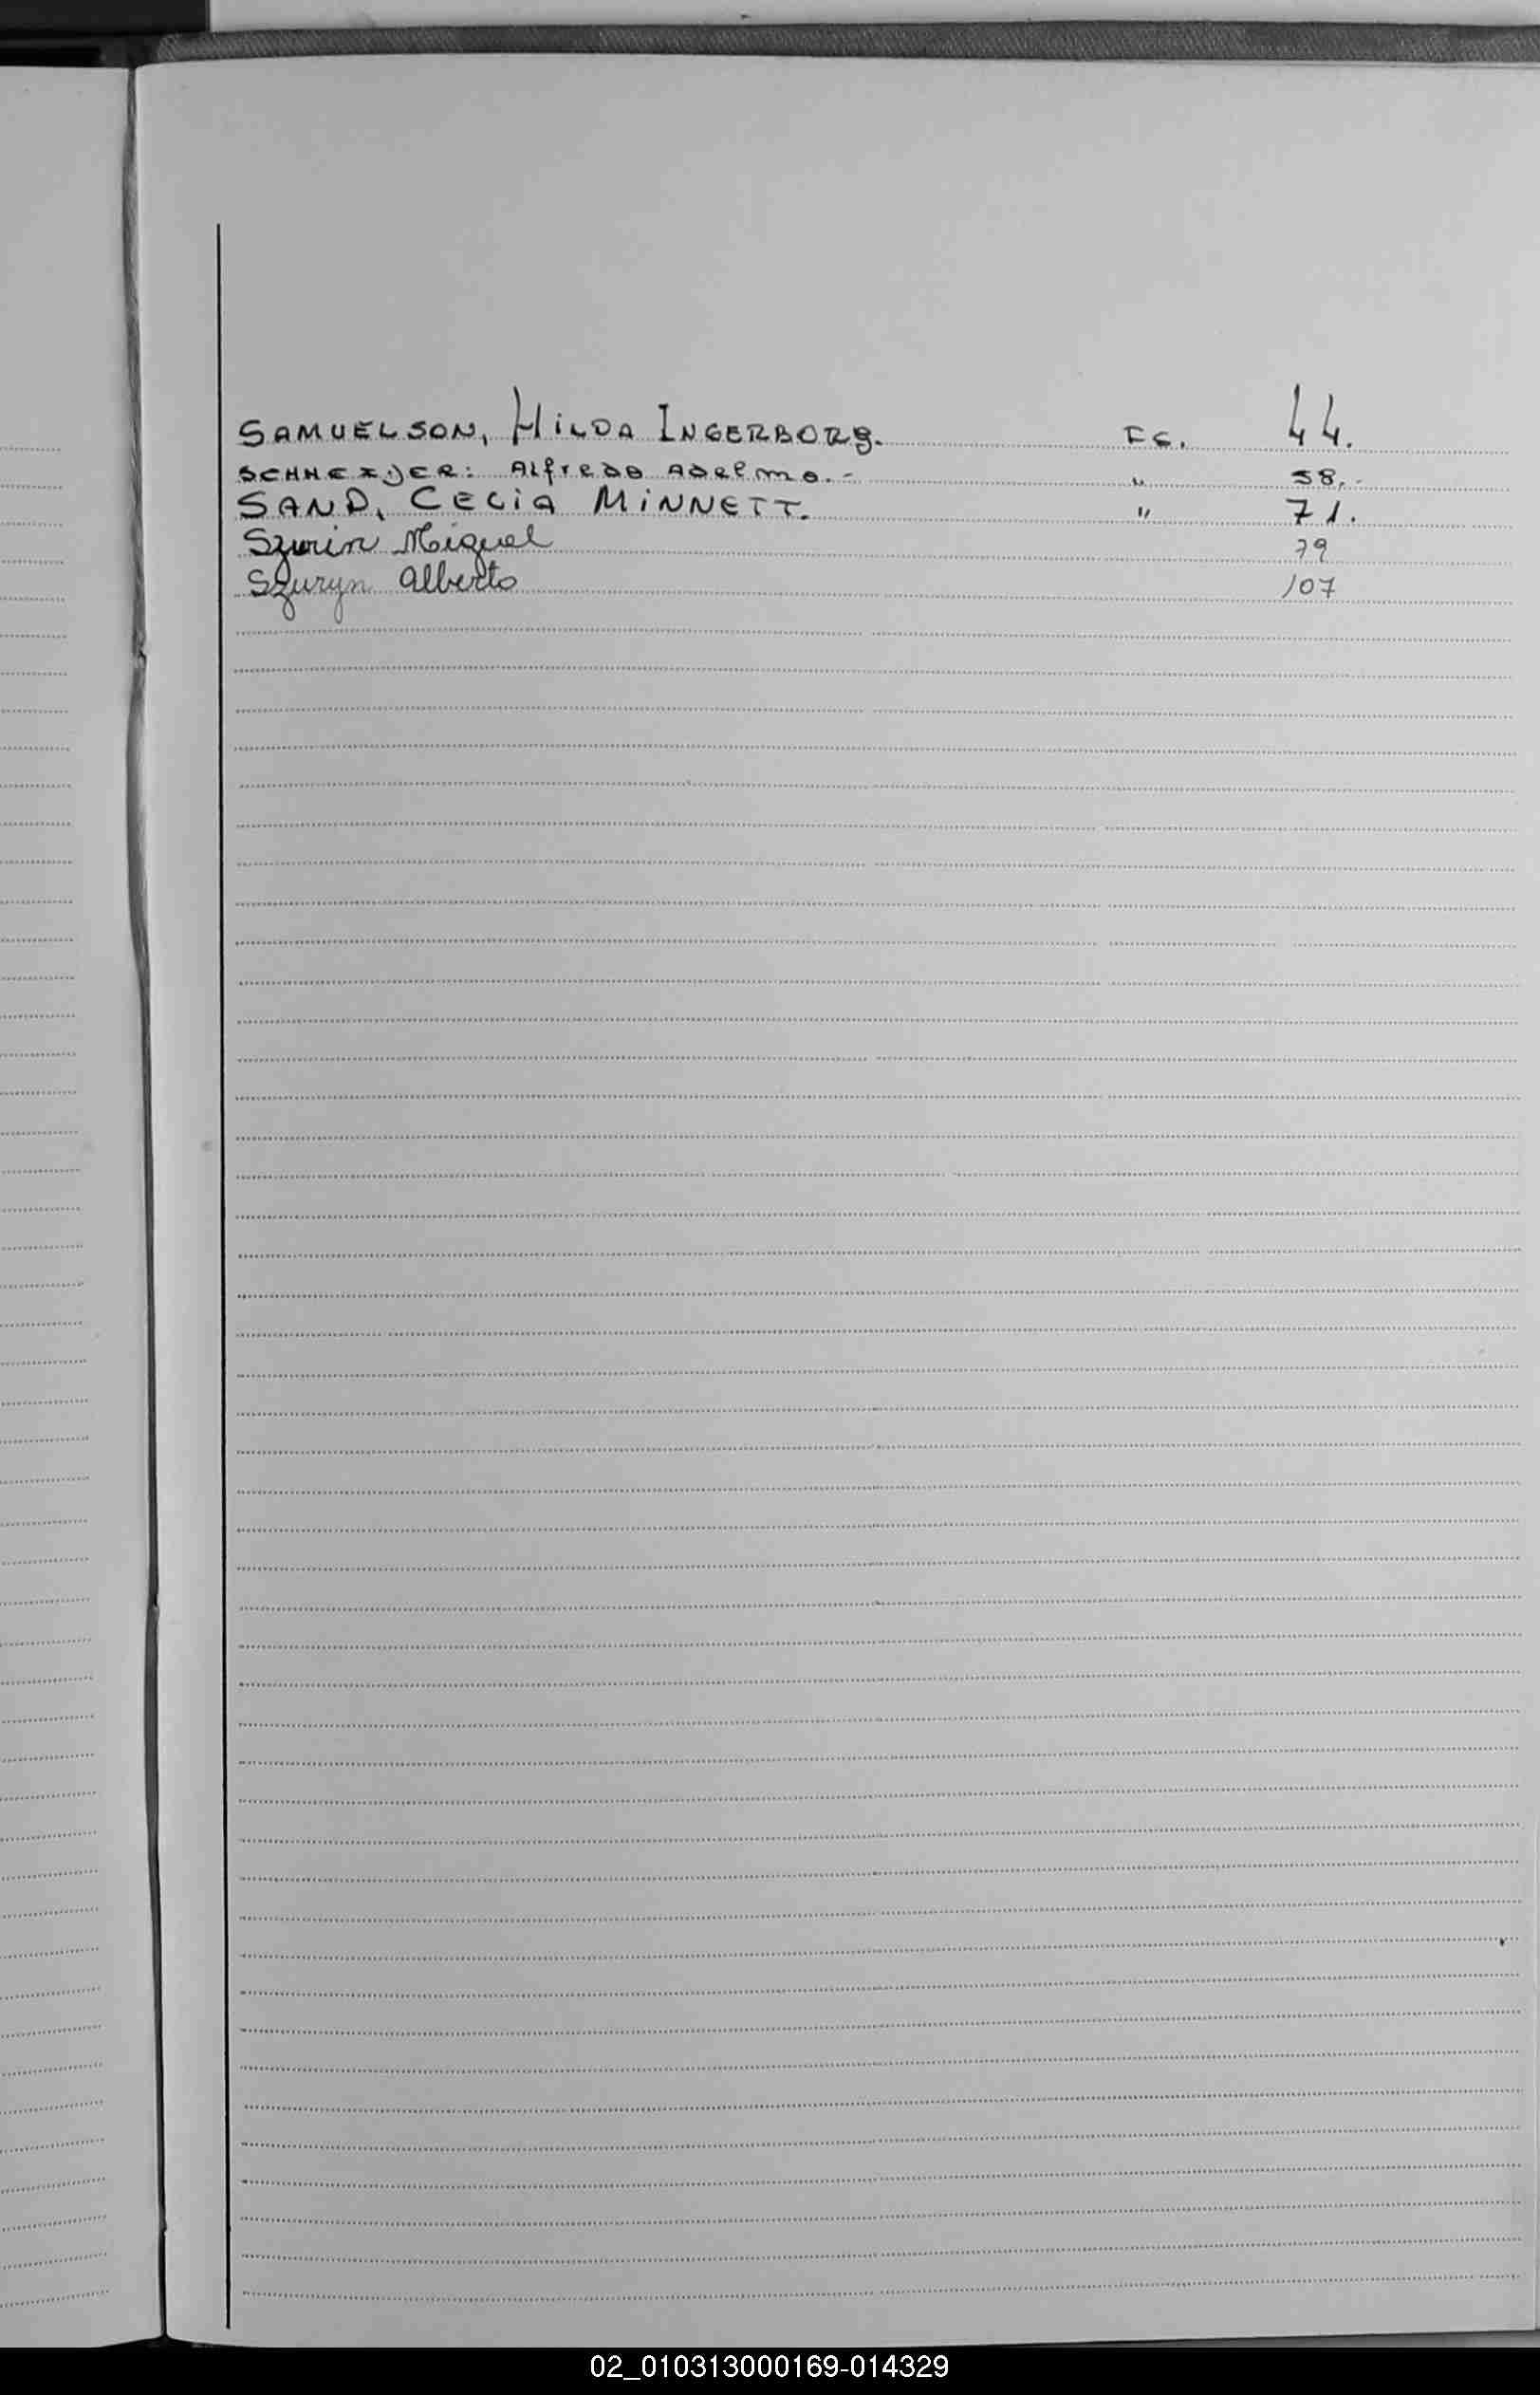 SAMUELSON, HILDA INGERBORg. FG. 44.
SCHNEIJER: Alfredo Adelmo.- " 58.-
SAND, CELIA MINNETT. " 71.
Szurin Miguel 79
Szuryn Alberto 107
02_010313000169-014329